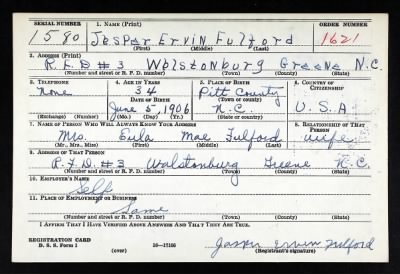 SERIAL NUMBER 1. NAME (Print) ORDER NUMBER
1580 Jesper Ervin Fulford 1621
(First) (Middle) (Last)
2. ADDRESS (Print)
R.F.D #3 Walstonburg Greene N.C.
(Number and street or R. F. D. number) (Town) (County) (State)
3. TELEPHONE 4. AGE IN YEARS 5. PLACE OF BIRTH 6. COUNTRY OF CITIZENSHIP
None 34 Pitt County
DATE OF BIRTH (Town or county)
June 5, 1906 N.C. U.S.A
(Exchange) (Number) (Mo.) (Day) (Yr.) (State or country)
7. NAME OF PERSON WHO WILL ALWAYS KNOW YOUR ADDRESS 8. RELATIONSHIP OF THAT PERSON
Mrs. Eula Mae Fulford wife
(Mr., Mrs., Miss) (First) (Middle) (Last)
9. ADDRESS OF THAT PERSON
R.F.D #3 Walstonburg Greene N.C.
(Number and street or R. F. D. number) (Town) (County) (State)
10. EMPLOYER'S NAME
Self
11. PLACE OF EMPLOYMENT OR BUSINESS
Same
(Number and street or R. F. D. number) (Town) (County) (State)
I AFFIRM THAT I HAVE VERIFIED ABOVE ANSWERS AND THAT THEY ARE TRUE.
REGISTRATION CARD
D. S. S. Form 1 (over) Jasper Ervin Fulford
(Registrant's signature)